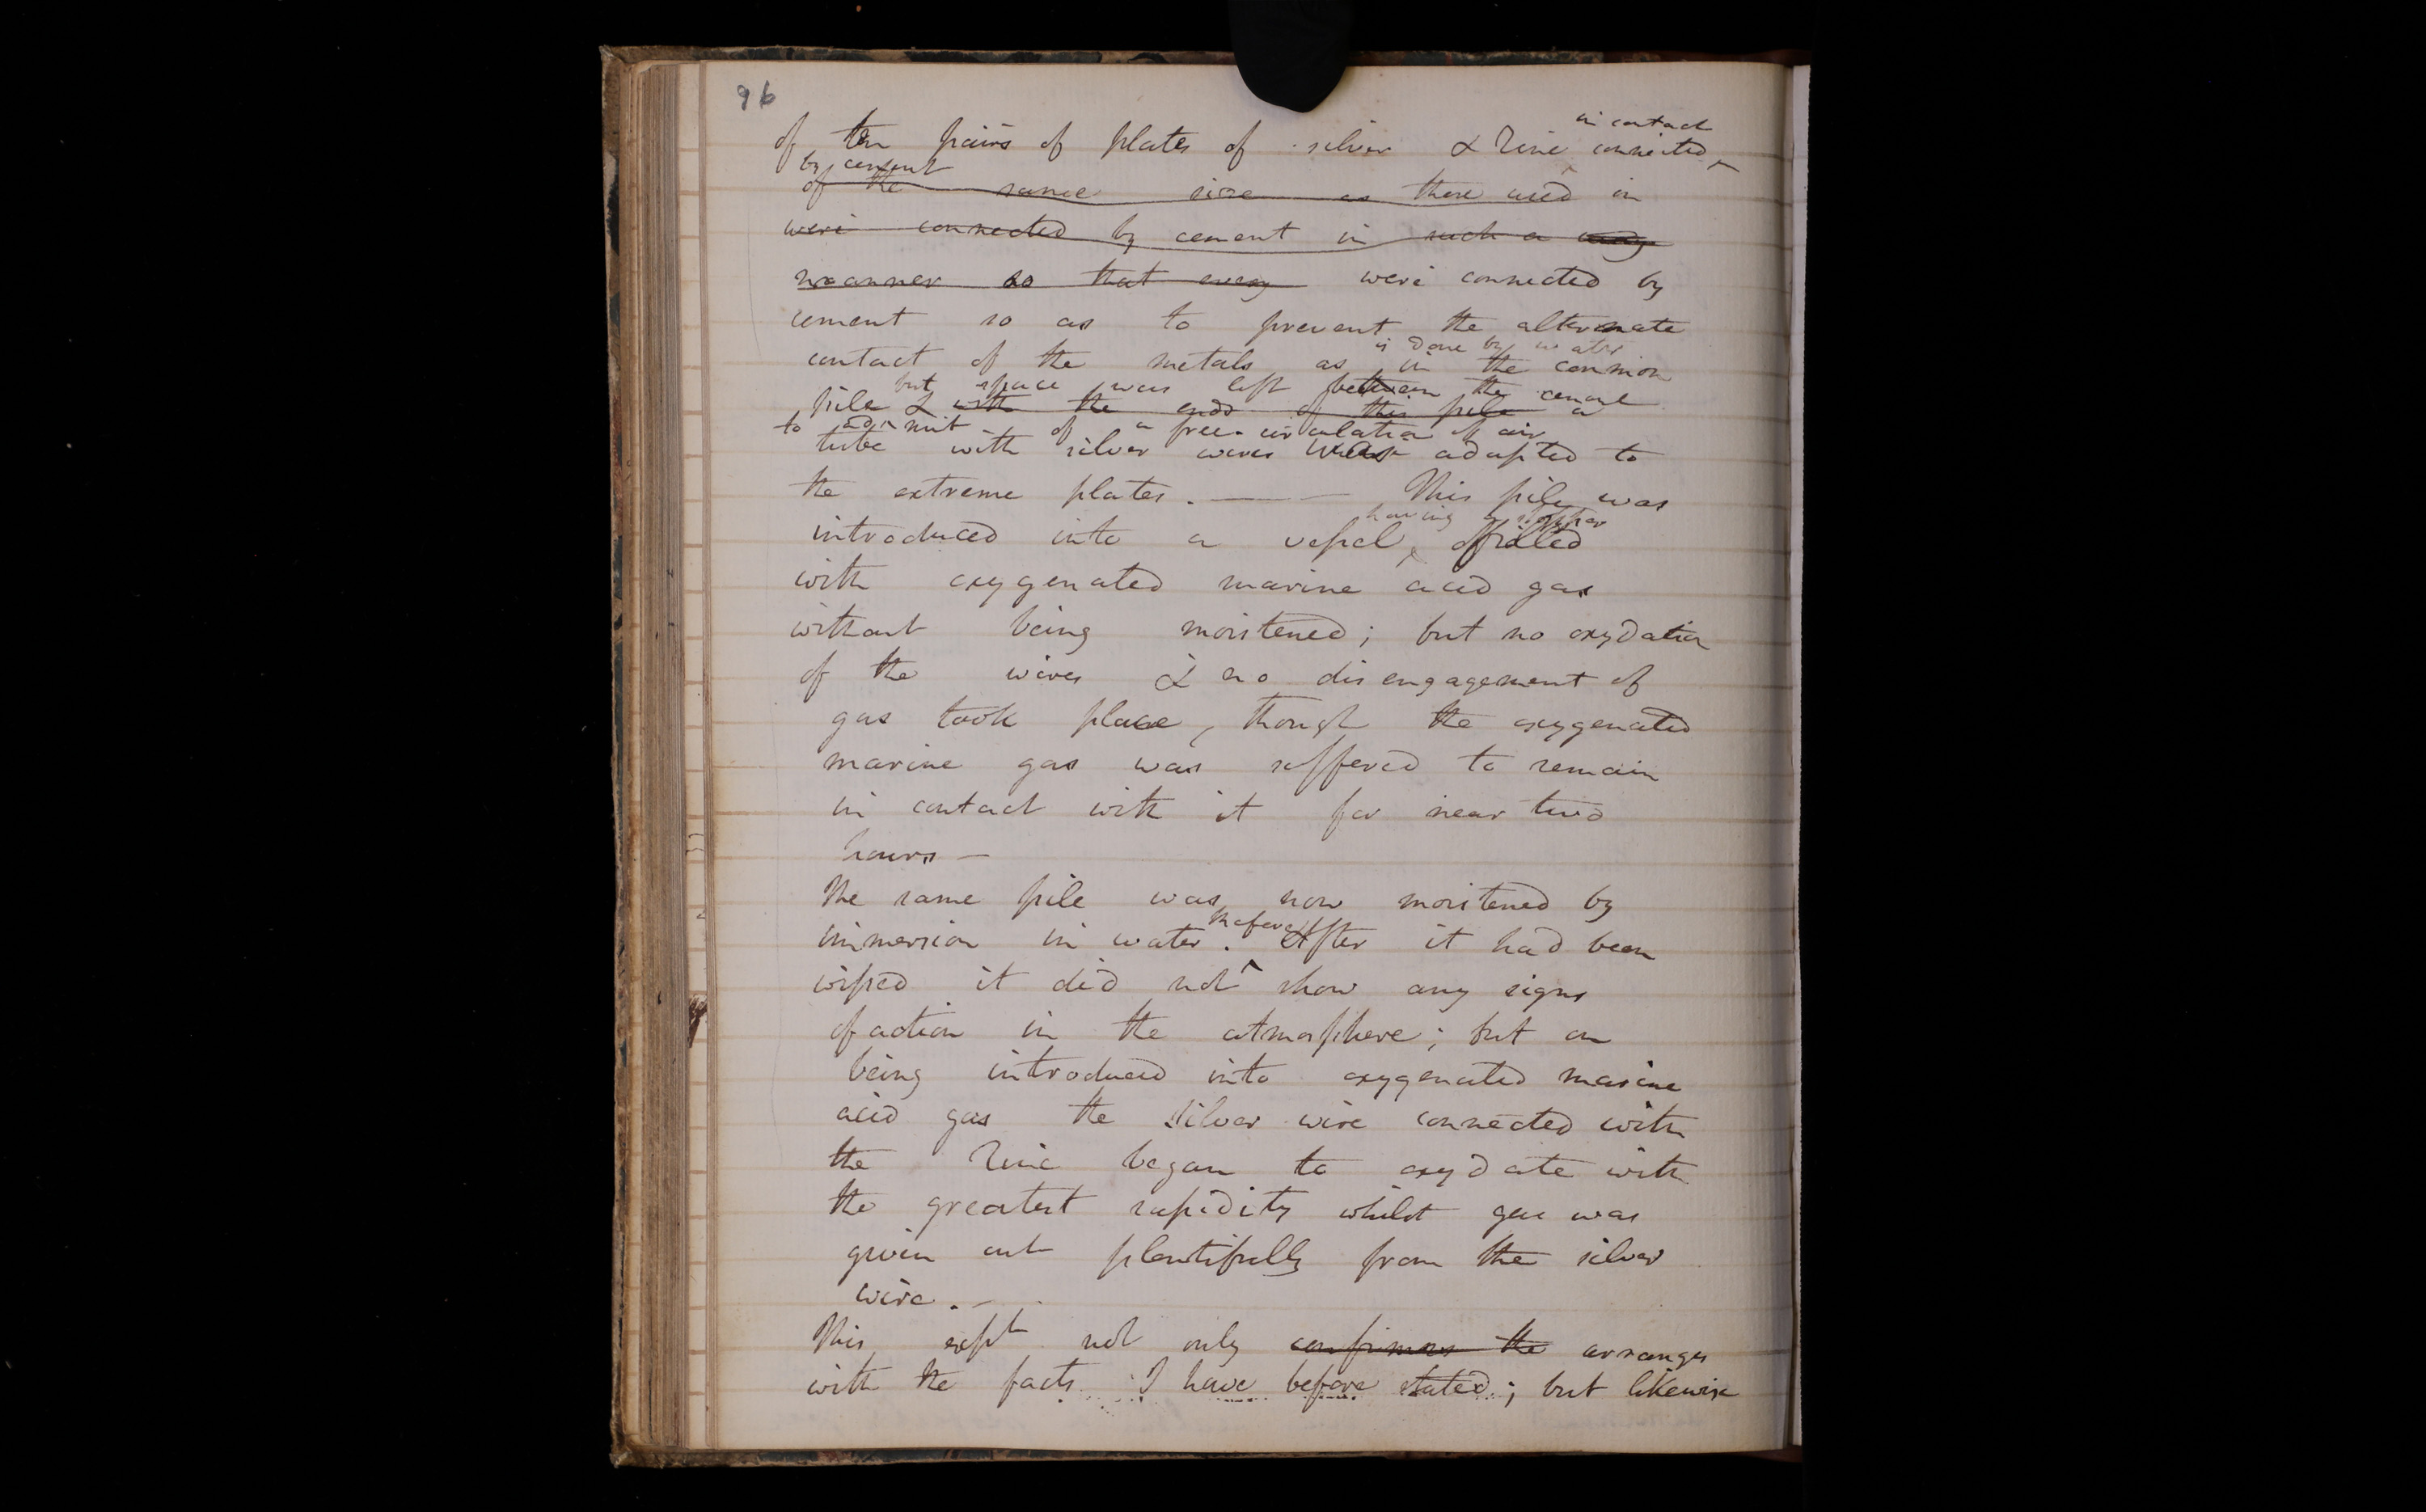 96
in contact
of ten pairs of plates of silver & Zinc connected
by cement
of the same size as those used in
were connected by cement in such a way
manner so that every were connected by
cement so as to prevent the alternate
is done by water
contact of the metals as in the common
but space was left between the cement
pile & with the ends of this pile a
to admit of a free circulation of air
tube with silver wires was adapted to
the extreme plates. —— This pile was
having a stopper
introduced into a vessel, filled
with oxygenated marine acid gas
without being moistened; but no oxydation
of the wires & no disengagement of
gas took place, though the oxygenated
marine gas was suffered to remain
in contact with it for near two
hours —
The same pile was now moistened by
therefore
immersion in water. After it had been
wiped it did not show any signs
of action in the atmosphere; but on
being introduced into oxygenated marine
acid gas the silver wire connected with
the Zinc began to oxydate with
the greatest rapidity whilst gas was
given out plentifully from the silver
wire. —
This expt not only confirms the arranges
with the facts I have before stated; but likewise